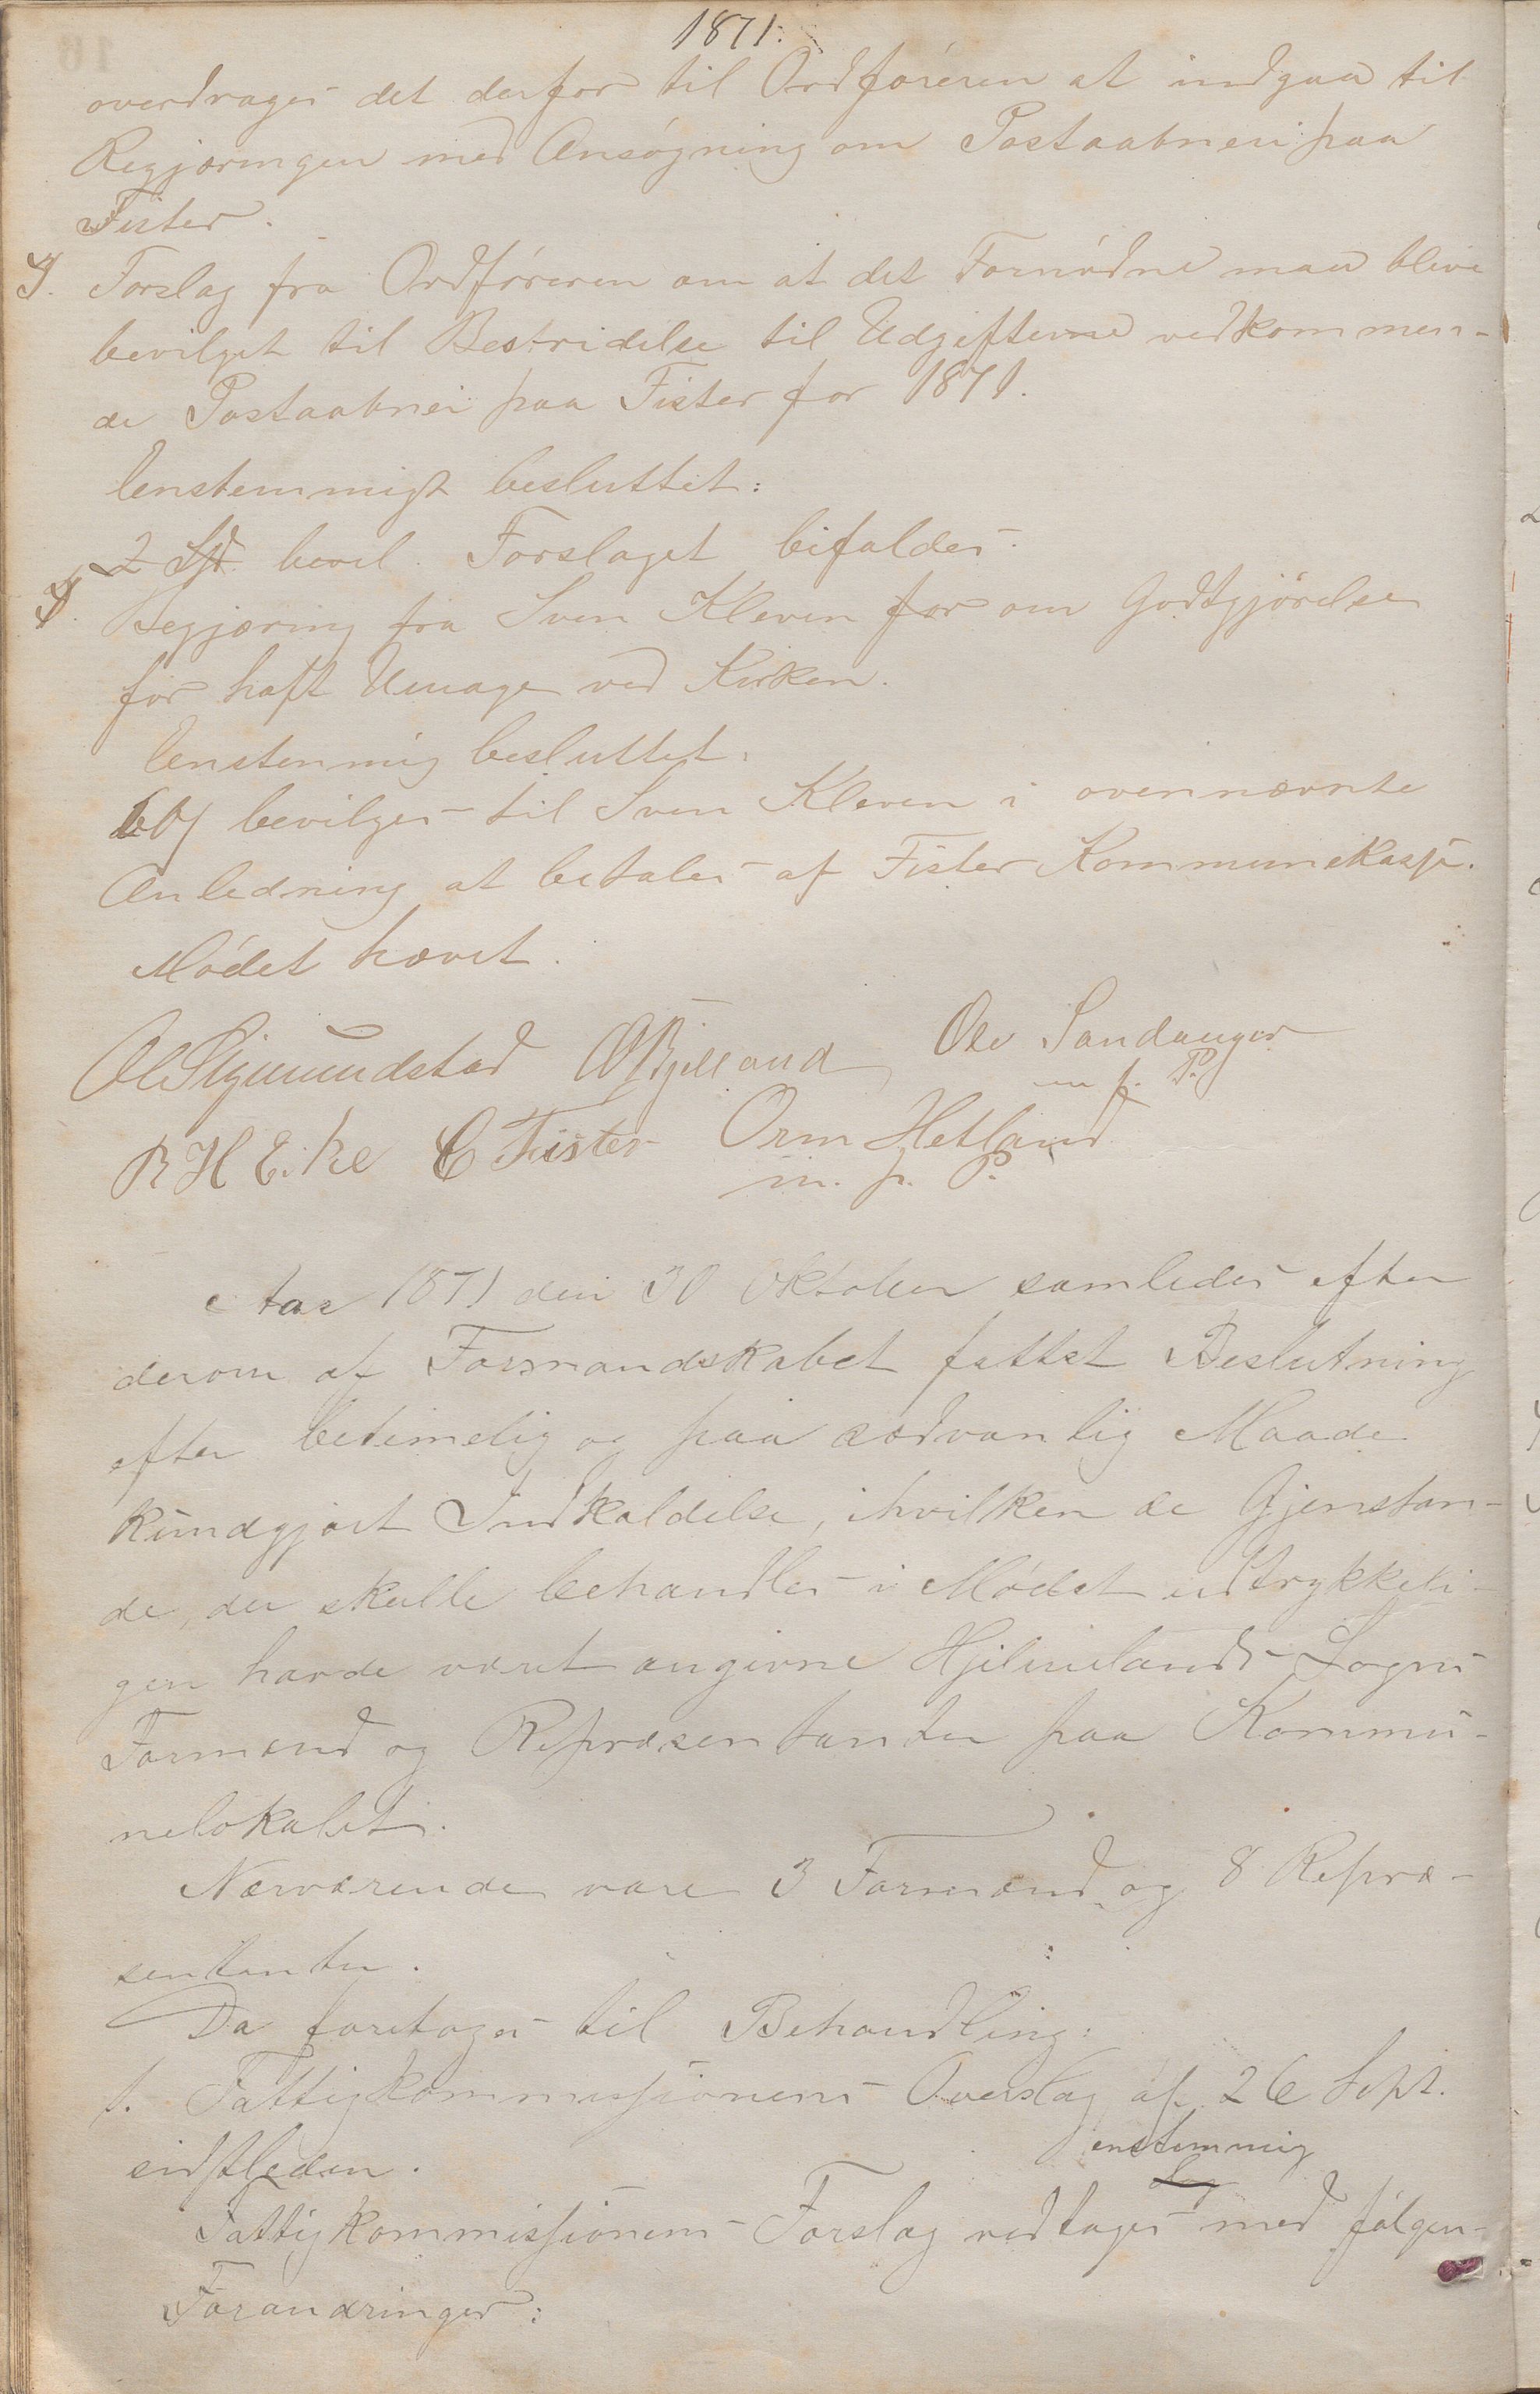 1871.
overdrages det derfor til Ordføreren at indgaa til
Regjæringen med Ansøgning om Postaabneri paa
Fister.
Forslag fra Ordføreren om at det Fornødne maa blive
bevilget til Bestridelse til Udgifterne vedkommen-
de Postaabnei paa Fister for 1871.
Enstemmigt besluttet:
2 Spd. bevil. Forslaget bifaldes.
Begjæring fra Sven Kleven for om Godtgjörelse
for haft Umage ved Kirken.
Enstemmig besluttet:
bevilges til Sven Kleven i ovennævnte
Anledning at betales af Fister Kommunekasse.
Mødet hævet.
Ol Sigmundstad O Bjelland Ole Sandanger
m. p. P.
R H Eike C Fister Orm Hetland
m. p. P.
Aar 1871 den 30 Oktober samledes efter
derom af Formandskabet fattet Beslutning
efter betimelig og paa sædvanlig Maade
kundgjort Indkaldelse, i hvilken de Gjenstan-
de, der skulle behandles i Mødet udtrykkeli-
gen havde været angivne Hjelmelands Sogns
Formænd og Repræsentanter paa Kommu-
nelokalet.
Nærværende vare 3 Formænd og 8 Repræ-
sentanter.
Da foretoges til Behandling:
1. Fattigkommissionens Overslag af 26 Sept.
sidstleden.
enstemmig
Fattigkommissionens Forslag vedtages med følgen-
Forandringer: